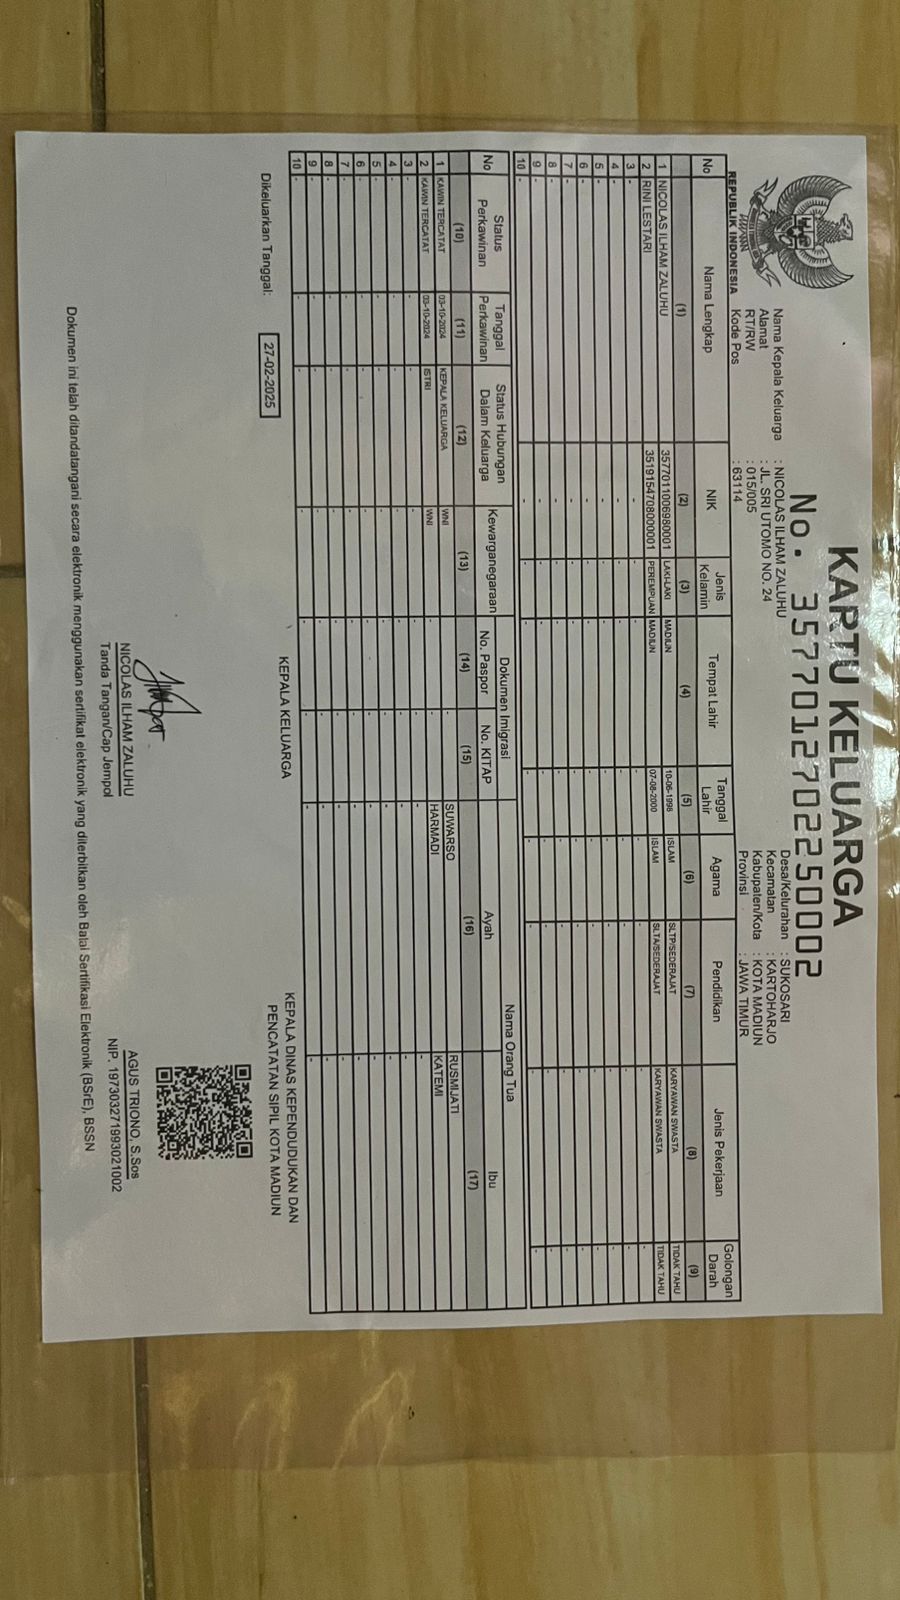 KARTU KELUARGA
No. 3577012702250002
REPUBLIK INDONESIA
Nama Kepala Keluarga : NICOLAS ILHAM ZALUHU
Alamat : JL. SRI UTOMO NO. 24
RT/RW : 015/005
Kode Pos : 63114
Desa/Kelurahan : SUKOSARI
Kecamatan : KARTOHARJO
Kabupaten/Kota : KOTA MADIUN
Provinsi : JAWA TIMUR
No Nama Lengkap NIK Jenis Kelamin Tempat Lahir Tanggal Lahir Agama Pendidikan Jenis Pekerjaan Golongan Darah
(1) (2) (3) (4) (5) (6) (7) (8) (9)
1 NICOLAS ILHAM ZALUHU 3577011006980001 LAKI-LAKI MADIUN 10-06-1998 ISLAM SLTP/SEDERAJAT KARYAWAN SWASTA TIDAK TAHU
2 RINI LESTARI 3519154708000001 PEREMPUAN MADIUN 07-08-2000 ISLAM SLTA/SEDERAJAT KARYAWAN SWASTA TIDAK TAHU
3 - - - - - - - - -
4 - - - - - - - - -
5 - - - - - - - - -
6 - - - - - - - - -
7 - - - - - - - - -
8 - - - - - - - - -
9 - - - - - - - - -
10 - - - - - - - - -
No Status Perkawinan Tanggal Perkawinan Status Hubungan Dalam Keluarga Kewarganegaraan Dokumen Imigrasi Nama Orang Tua
No. Paspor No. KITAP Ayah Ibu
(10) (11) (12) (13) (14) (15) (16) (17)
1 KAWIN TERCATAT 03-10-2024 KEPALA KELUARGA WNI - - SUWARSO RUSMIJATI
2 KAWIN TERCATAT 03-10-2024 ISTRI WNI - - HARMADI KATEMI
3 - - - - - - - -
4 - - - - - - - -
5 - - - - - - - -
6 - - - - - - - -
7 - - - - - - - -
8 - - - - - - - -
9 - - - - - - - -
10 - - - - - - - -
Dikeluarkan Tanggal: 27-02-2025
KEPALA KELUARGA
NICOLAS ILHAM ZALUHU
Tanda Tangan/Cap Jempol
KEPALA DINAS KEPENDUDUKAN DAN
PENCATATAN SIPIL KOTA MADIUN
AGUS TRIONO, S.Sos
NIP. 197303271993021002
Dokumen ini telah ditandatangani secara elektronik menggunakan sertifikat elektronik yang diterbitkan oleh Balai Sertifikasi Elektronik (BSrE), BSSN